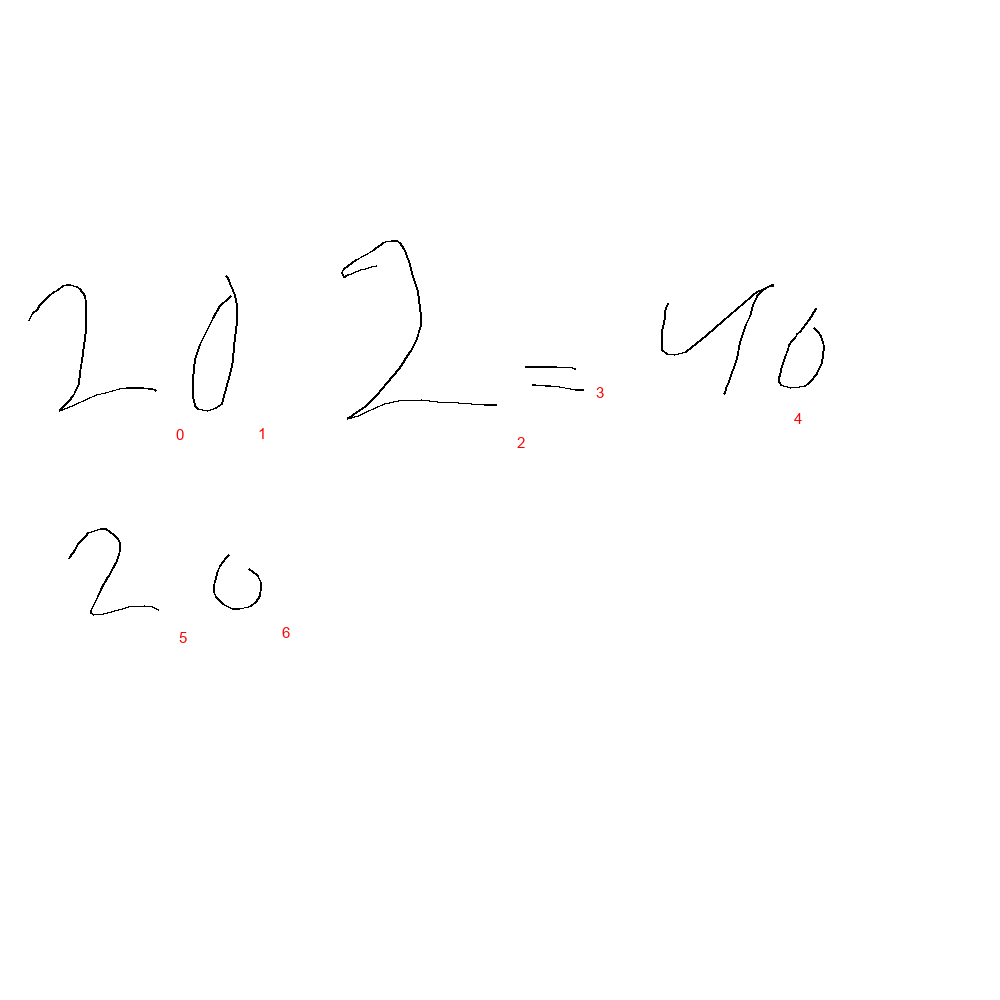 20 2 = 40
0 1 2 3 4
20
5 6